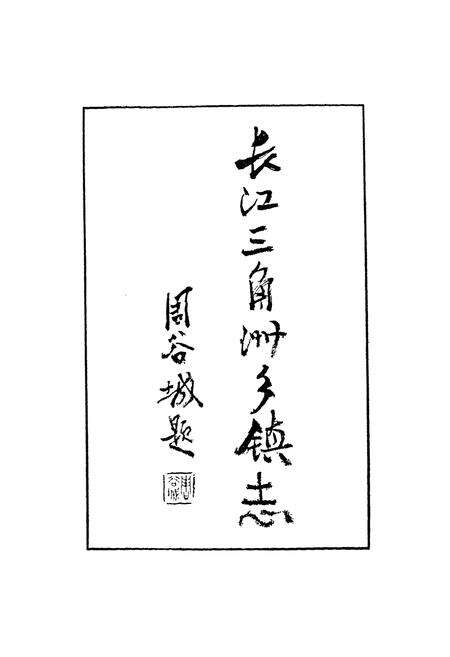 长江三角洲乡镇志
周谷城题
周谷城